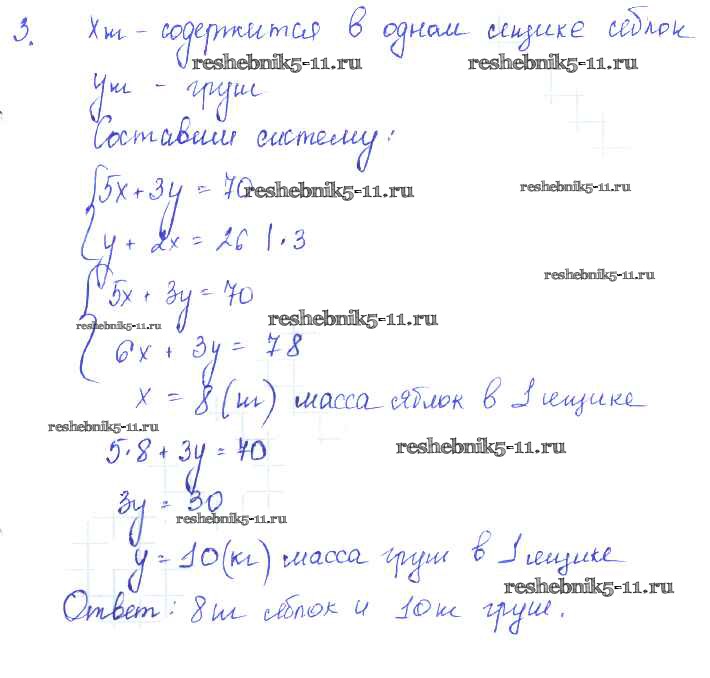 3. Xкг - содержится в одном ящике яблок
reshebnik5-11.ru reshebnik5-11.ru
Yкг - груш
Составим систему:
5x + 3y = 70
reshebnik5-11.ru reshebnik5-11.ru
y + 2x = 26 | · 3
reshebnik5-11.ru
5x + 3y = 70
reshebnik5-11.ru reshebnik5-11.ru
6x + 3y = 78
x = 8 (кг) масса яблок в 1 ящике
reshebnik5-11.ru
5·8 + 3y = 70 reshebnik5-11.ru
3y = 30
reshebnik5-11.ru
y = 10 (кг) масса груш в 1 ящике
reshebnik5-11.ru
Ответ: 8кг яблок и 10кг груш.